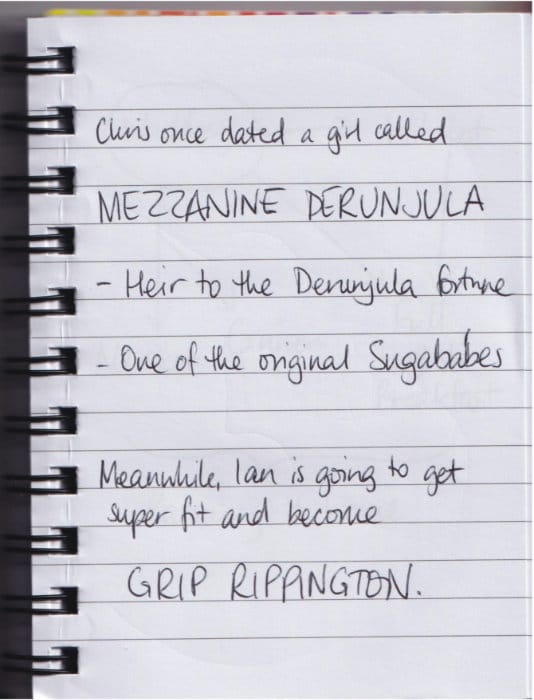 Chris once dated a girl called
MEZZANINE DERUNJULA
- Heir to the Derunjula fortune
- One of the original Sugababes
Meanwhile, Ian is going to get
super fit and become
GRIP RIPPINGTON.